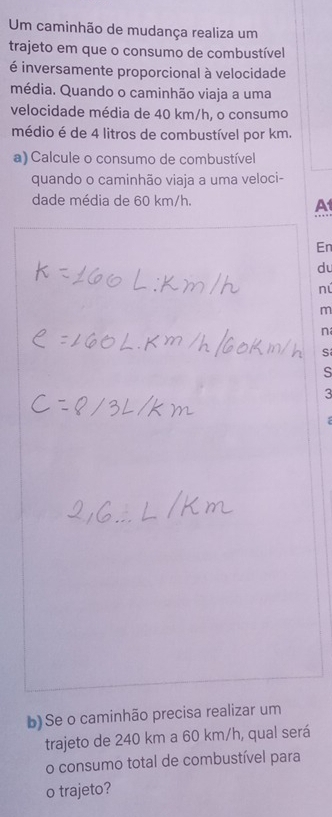 Um caminhão de mudança realiza um
trajeto em que o consumo de combustível
é inversamente proporcional à velocidade
média. Quando o caminhão viaja a uma
velocidade média de 40 km/h, o consumo
médio é de 4 litros de combustível por km.
a) Calcule o consumo de combustível
quando o caminhão viaja a uma veloci-
dade média de 60 km/h.
K = 160 L.Km/h
C = 160 L.Km/h/60Km/h
C = 8/3 L/Km
2,6... L/Km
b) Se o caminhão precisa realizar um
trajeto de 240 km a 60 km/h, qual será
o consumo total de combustível para
o trajeto?
At
En
du
nú
m
na
S
3